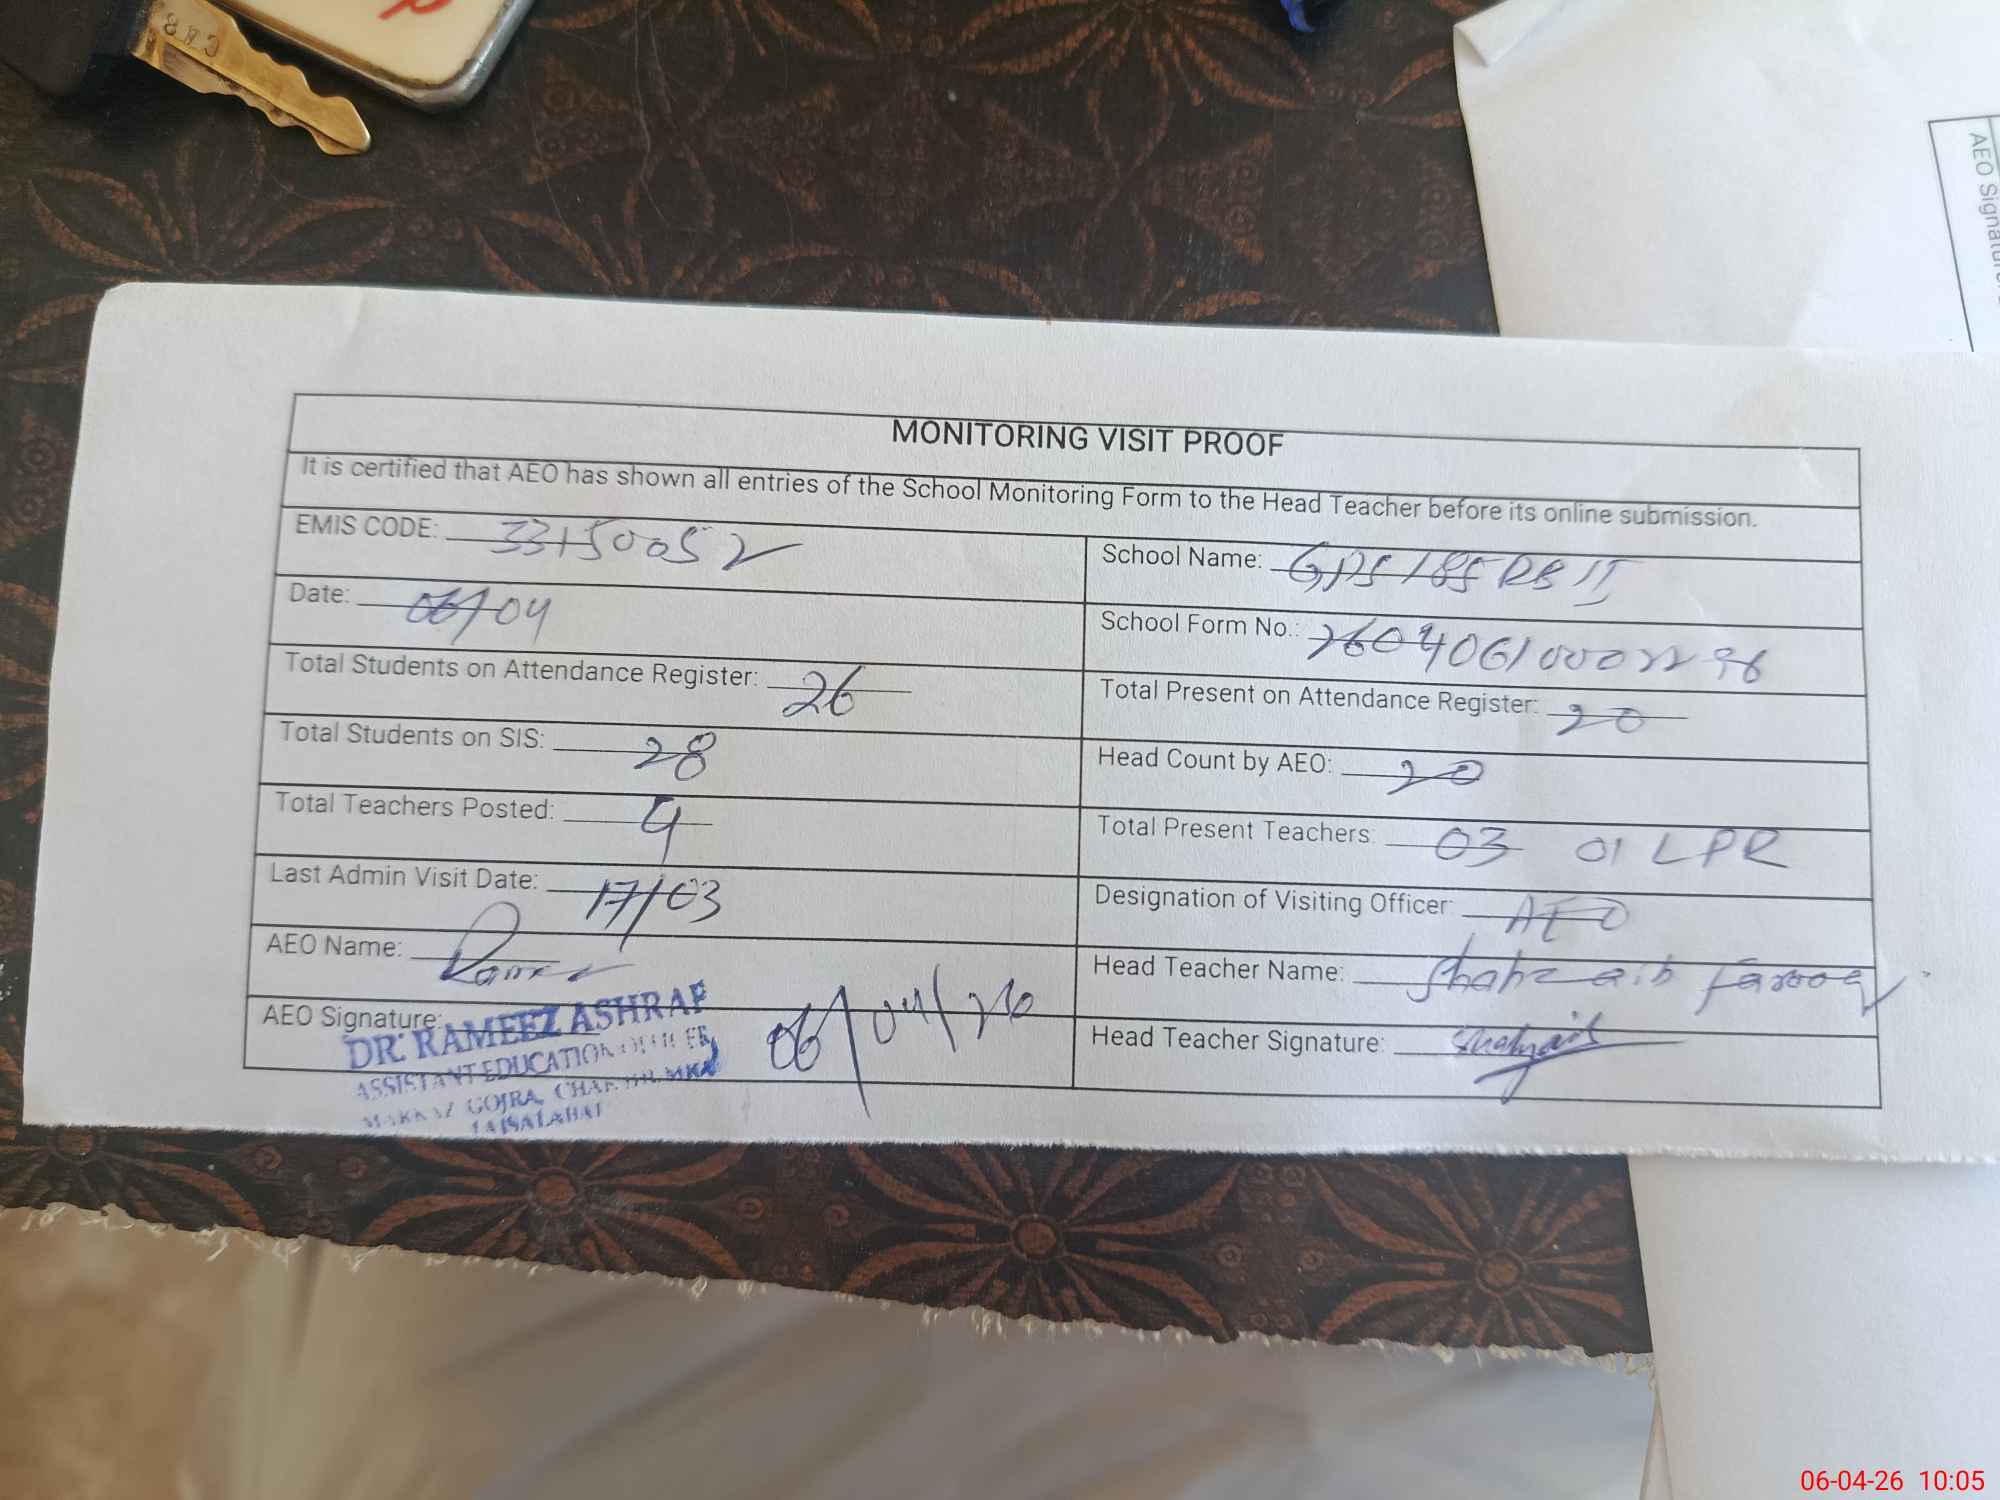 C48
AEO Signature:
MONITORING VISIT PROOF
It is certified that AEO has shown all entries of the School Monitoring Form to the Head Teacher before its online submission.
EMIS CODE: 33150052
School Name: GPS 185 RB II
Date: 06/04
School Form No.: 26040610002296
Total Students on Attendance Register: 26
Total Present on Attendance Register: 20
Total Students on SIS: 28
Head Count by AEO: 20
Total Teachers Posted: 4
Total Present Teachers: 03 01 LPR
Last Admin Visit Date: 17/03
Designation of Visiting Officer: AEO
AEO Name: Rameez
Head Teacher Name: Shahzaib Farooq
AEO Signature:
06/04/26
Head Teacher Signature: Shahzaib
DR. RAMEEZ ASHRAF
ASSISTANT EDUCATION OFFICER
MARKAZ GOJRA,
FAISALABAD
06-04-26 10:05